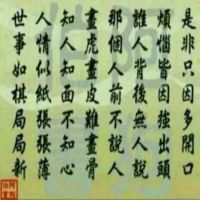 是非只因多開口
煩惱皆因強出頭
誰人背後無人說
那個人前不說人
畫虎畫皮難畫骨
知人知面不知心
人情似紙張張薄
世事如棋局局新